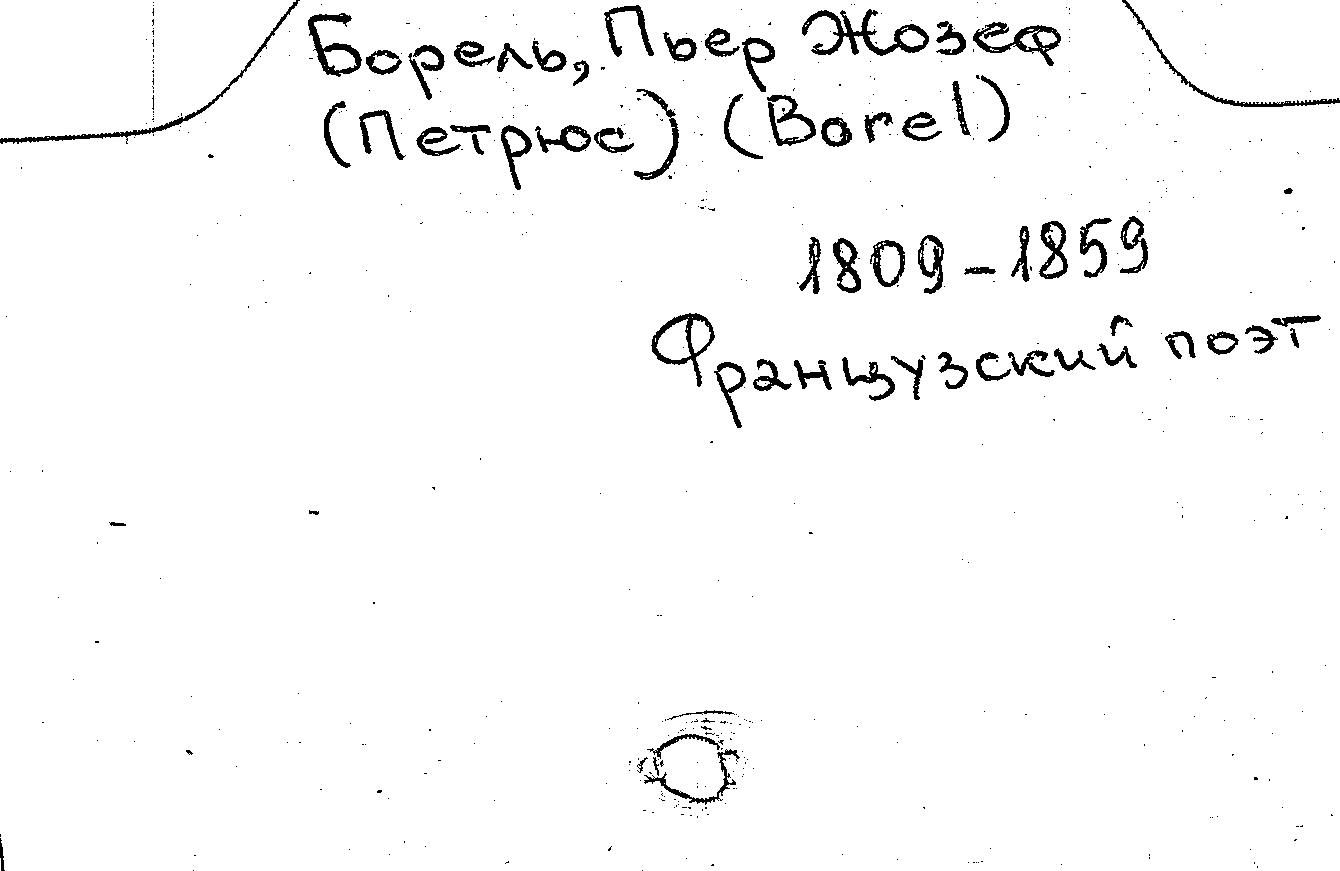 Борель, Пьер Жозеф
(Петрюс) (Borel)
1809-1859
Французский поэт